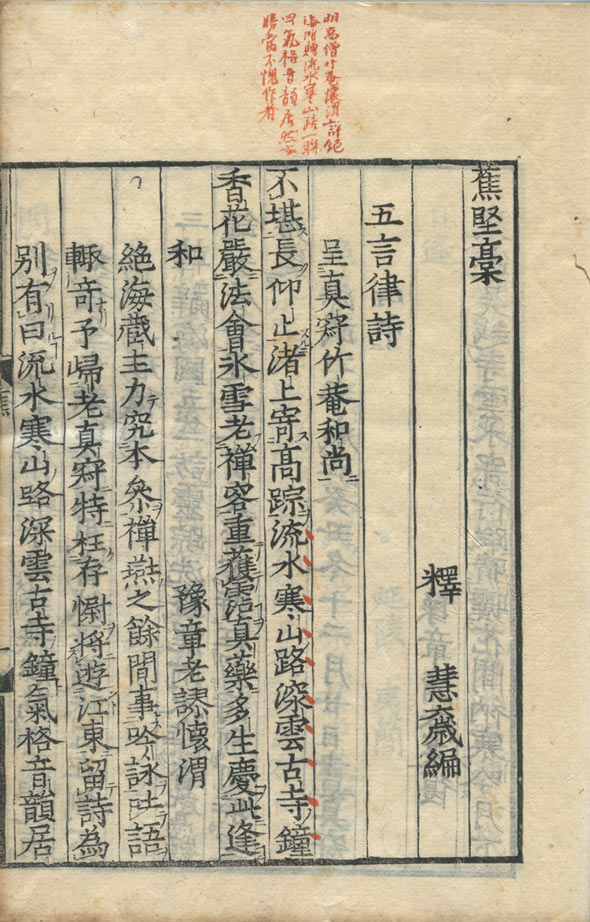 明高僧竹菴懷渭上評絶
海所賻流水寒山路一聯
曰氣格音韻居然玄
勝當不愧作者
蕉堅藁
釋 慧奯編
五言律詩
呈真寂竹菴和尚
不堪長仰止渚上寄高踪流水寒山路深雲古寺鐘
香花嚴法會氷雪老禪容重獲霑真藥多生慶此逢
和
豫章老謬懷渭
絶海藏主力究本參禪燕之餘間事吟詠吐語
輙奇予歸老真寂特枉存慰將遊江東留詩為
別有曰流水寒山路深雲古寺鐘氣格音韻居
蕉